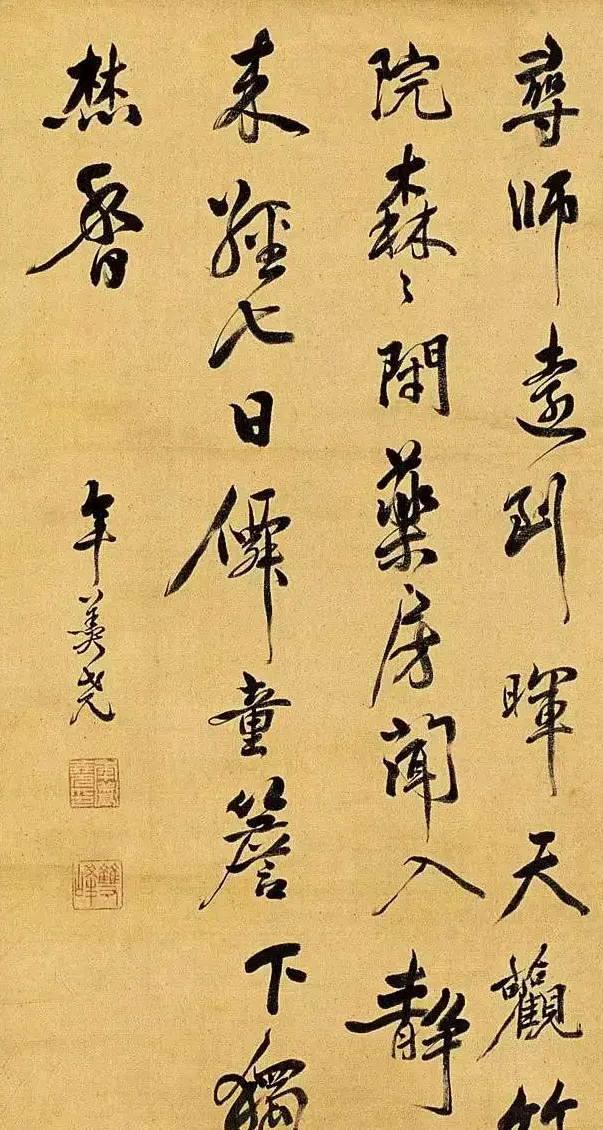 尋師遠到暉天觀竹
院森々閉藥房聞入靜
來經七日僊童簷下獨
焚香
年羹堯
雙峰